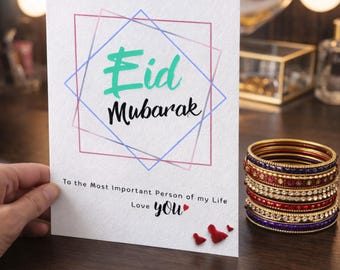 Eid
Mubarak
To the Most Important Person of my Life
Love you